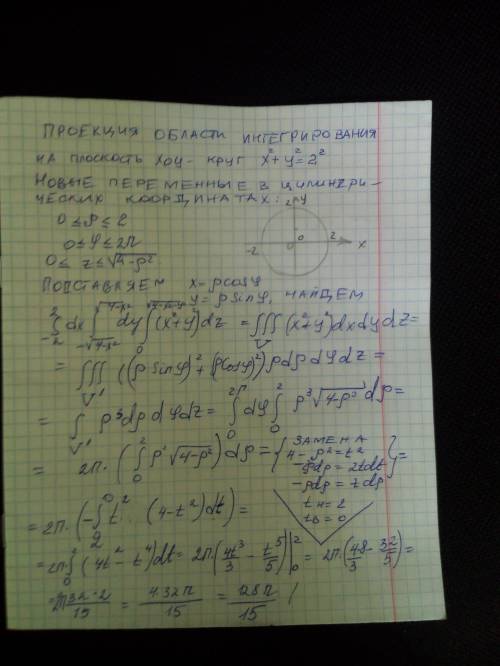 ПРОЕКЦИЯ ОБЛАСТИ ИНТЕГРИРОВАНИЯ
НА ПЛОСКОСТЬ XOY - КРУГ x²+y²=2²
НОВЫЕ ПЕРЕМЕННЫЕ В ЦИЛИНДРИ-
ЧЕСКИХ КООРДИНАТАХ:
0 ≤ ρ ≤ 2
0 ≤ φ ≤ 2π
0 ≤ z ≤ √(4-ρ²)
2 y
-2 0 2 x
ПОДСТАВЛЯЕМ x = ρcosφ
y = ρ sinφ, НАЙДЕМ
∫_{-2}^{2} dx ∫_{-√(4-x²)}^{√(4-x²)} dy ∫_{0}^{√(4-x²-y²)} (x²+y²)dz = ∭_V (x²+y²)dxdydz =
= ∭_{V'} ((ρ sinφ)² + (ρcosφ)²) ρdρ dφ dz =
= ∫_{V'} ρ³dρ dφ dz = ∫_0^{2π} dφ ∫_0^2 ρ³√(4-ρ²) dρ =
= 2π·(∫_0^2 ρ³√(4-ρ²)) dρ = { ЗАМЕНА
4-ρ²=t²
-2ρdρ = 2tdt
-ρdρ = tdρ
tн=2
tв=0 } =
= 2π·(-∫_2^0 t²·(4-t²)dt) =
= 2π·∫_0^2 (4t²-t⁴)dt = 2π·(4t³/3 - t⁵/5)|_0^2 = 2π·(4·8/3 - 32/5) =
= 2π 32·2/15 = 4·32π/15 = 128π/15